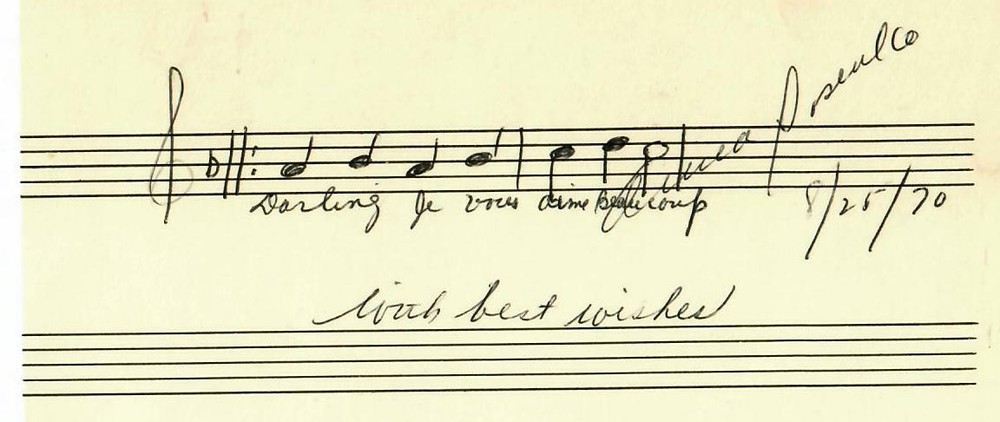 Darling Je vous aime beaucoup
Anna Sosenko
8/25/70
With best wishes